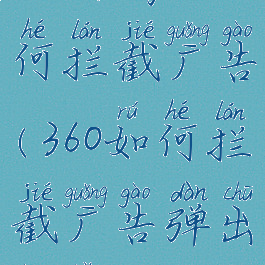 hé lán jié guǎng gào
何拦截广告
rú hé lán
(360如何拦
jié guǎng gào dàn chū
截广告弹出